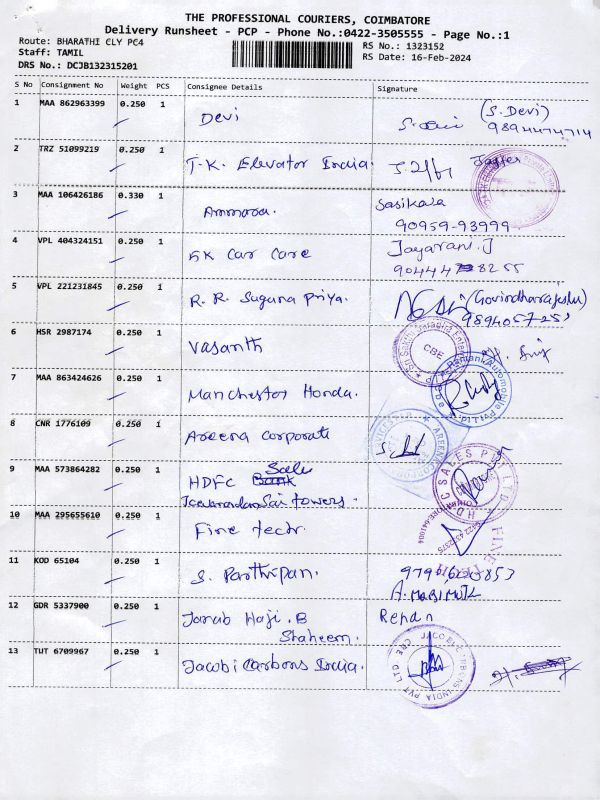 THE PROFESSIONAL COURIERS, COIMBATORE
Delivery Runsheet - PCP - Phone No.:0422-3505555 - Page No.:1
Route: BHARATHI CLY PC4
RS No.: 1323152
Staff: TAMIL
RS Date: 16-Feb-2024
DRS No.: DCJB132315201
S No Consignment No Weight PCS Consignee Details Signature
1 MAA 862963399 0.250 1 Devi (S. Devi)
9894474714
2 TRZ 51099219 0.250 1 T.K. Elevator India.
3 MAA 106426186 0.330 1 Sasikala
90959-93999
4 VPL 404324151 0.250 1 SK Car Care Jayarani. J
5 VPL 221231845 0.250 1 R. R. Suguna Priya. (Govindharajeslu)
6 HSR 2987174 0.250 1 Vasanth
CBE
7 MAA 863424626 0.250 1 Manchester Honda.
8 CNR 1776109 0.250 1 Areena Corporate
9 MAA 573864282 0.250 1 HDFC Sales
towers.
HDFC SALES PVT LTD
10 MAA 295655610 0.250 1 Fine tech.
11 KOD 65104 0.250 1 S. Parthipan.
A. MARIMUTH
12 GDR 5337900 0.250 1 Janab Haji. B Rehan
Shaheem.
13 TUT 6709967 0.250 1 Jacobi Carbons India.